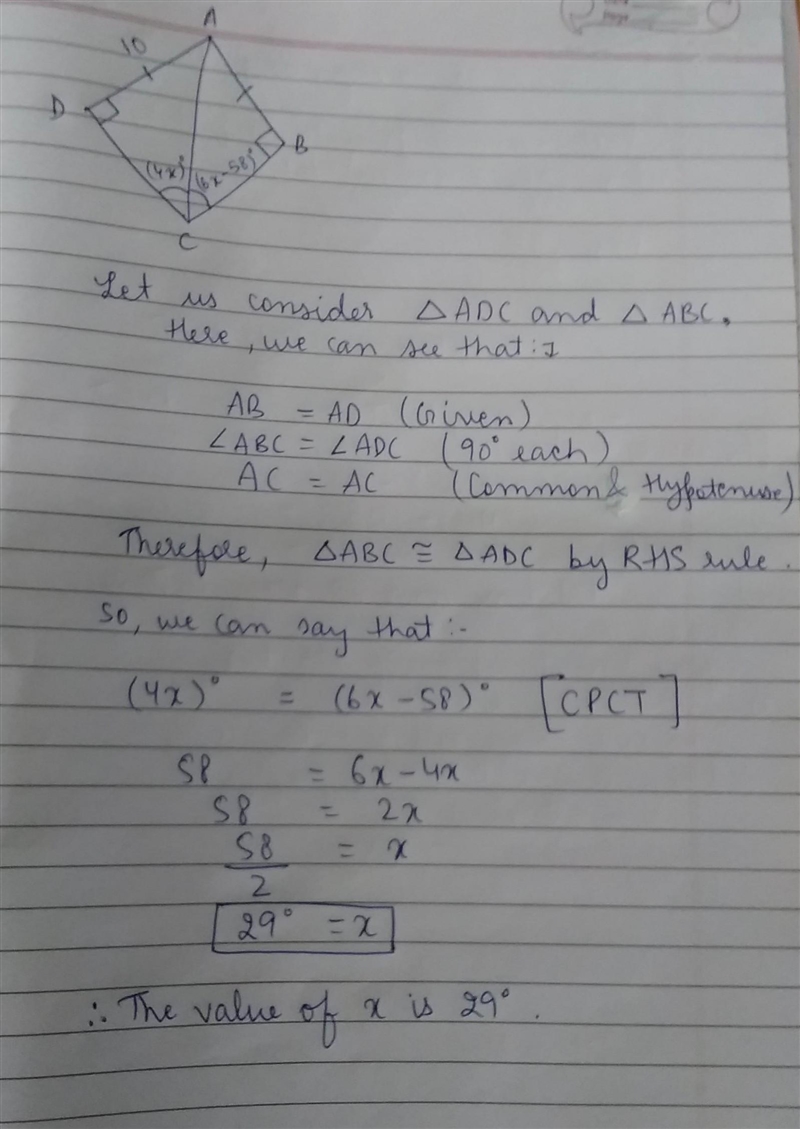 A
10
D
B
(4x)°
(6x-58)°
C
Let us consider △ADC and △ABC.
Here, we can see that:-
AB = AD (Given)
∠ABC = ∠ADC (90° each)
AC = AC (Common & Hypotenuse)
Therefore, △ABC ≅ △ADC by RHS rule.
So, we can say that :-
(4x)° = (6x-58)° [CPCT]
58 = 6x-4x
58 = 2x
58/2 = x
29° = x
∴ The value of x is 29°.